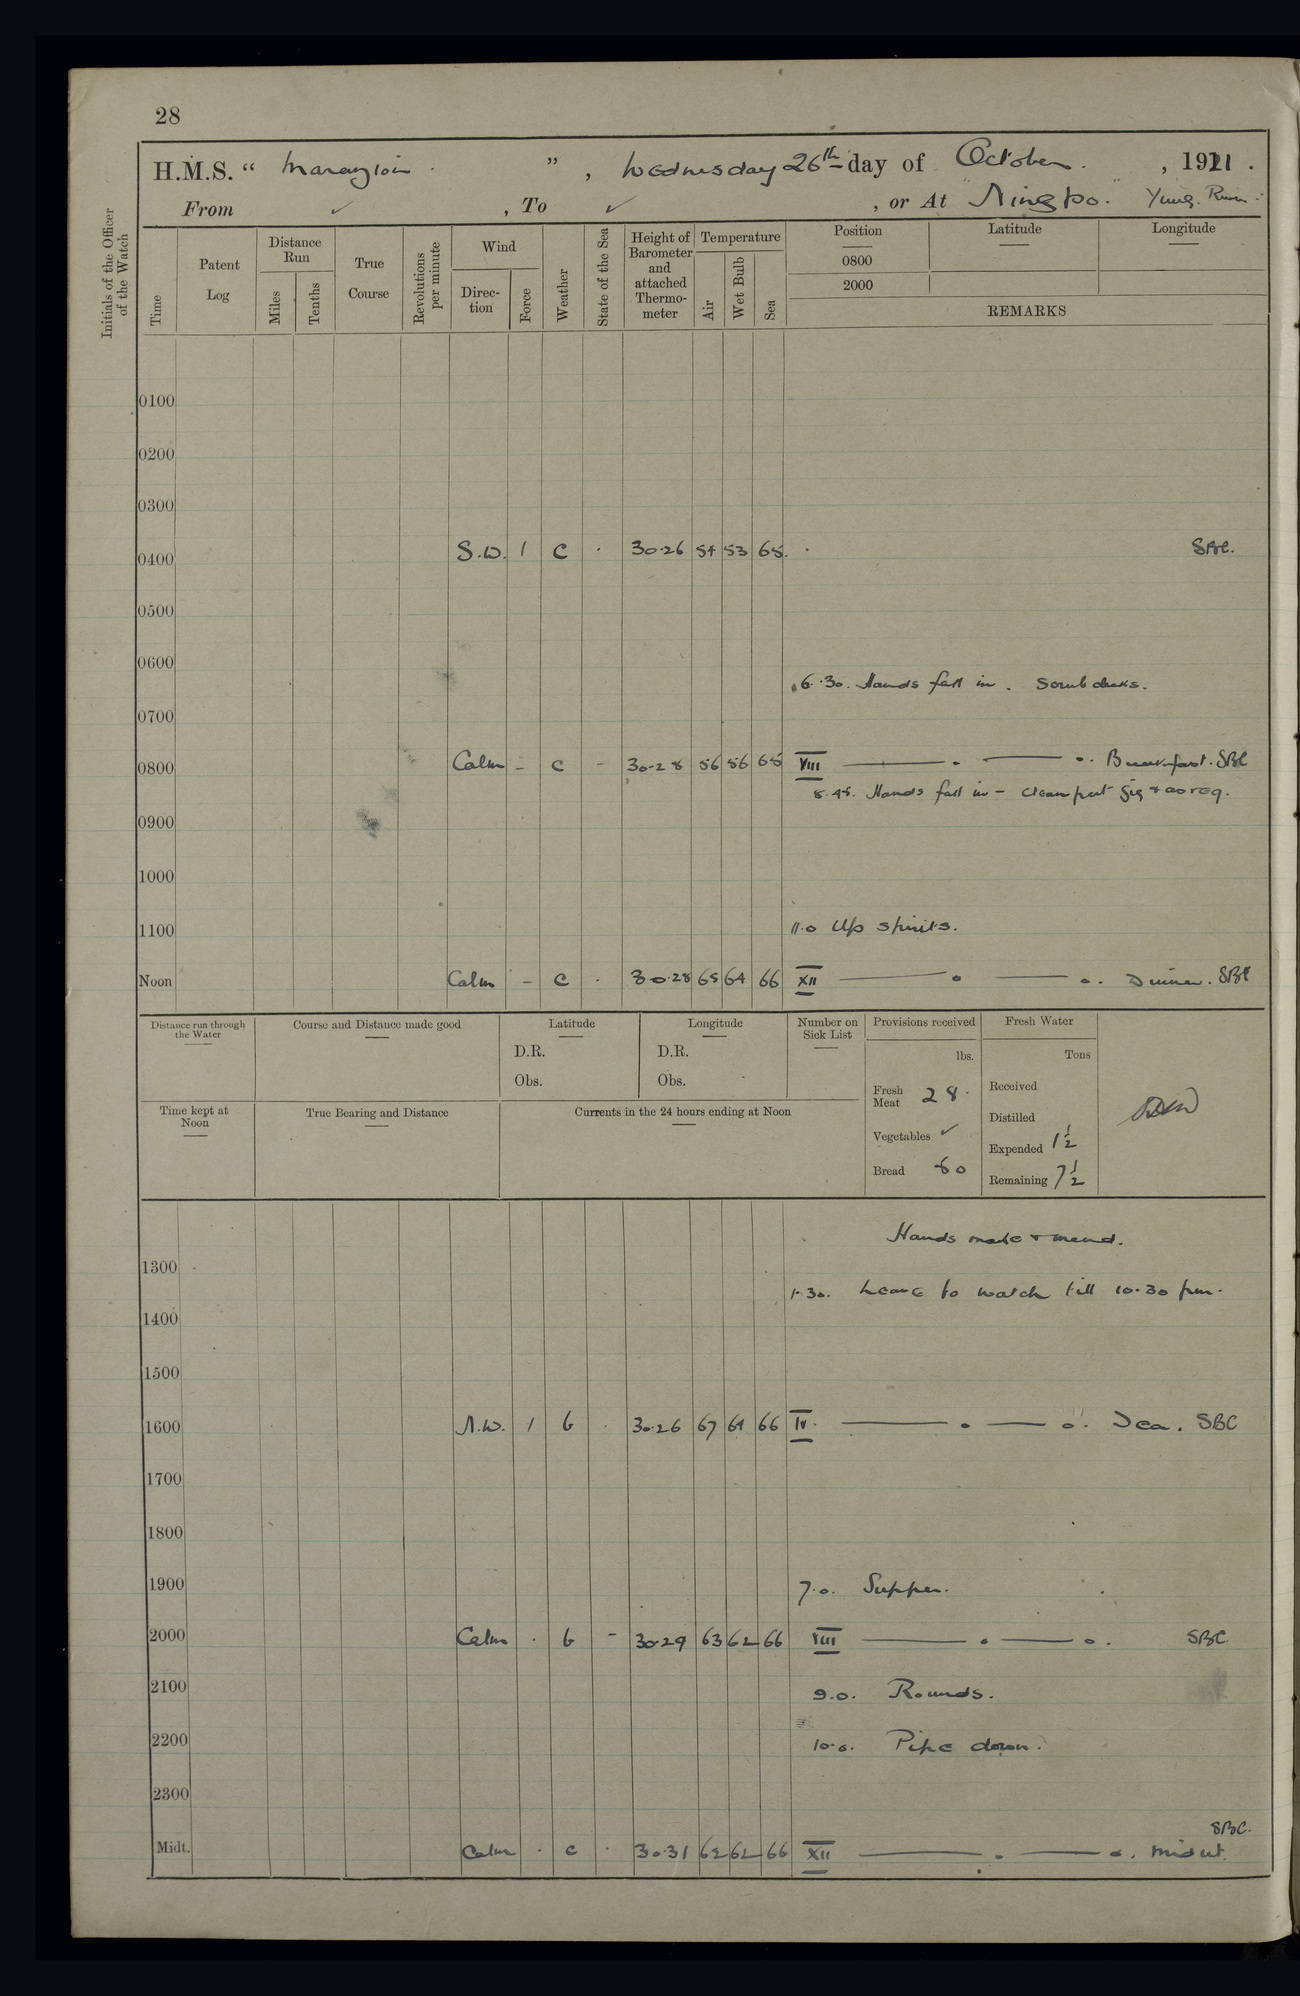 28
H.M.S. “ Marazion ” , Wednesday 26th day of October , 1921 .
From ✓ , To ✓ , or At Ningpo. Yung River
Initials of the Officer of the Watch
Time
Patent Log
Distance Run
Miles
Tenths
True Course
Revolutions per minute
Wind
Direction
Force
Weather
State of the Sea
Height of Barometer and attached Thermometer
Temperature
Air
Wet Bulb
Sea
Position
0800
2000
Latitude
Longitude
REMARKS
0100
0200
0300
S.W. 1 c . 30.26 54 53 65 . SBC.
0400
0500
0600
6.30. Hands fall in. Scrub decks.
0700
0800 Calm - c - 30.28 56 56 65 VIII Breakfast. SBC
8.45. Hands fall in - clean
0900
1000
1100 11.0 Up spirits.
Noon Calm - c . 30.28 65 64 66 XII Dinner. SBC
Distance run through the Water
Course and Distance made good
Latitude
D.R.
Obs.
Longitude
D.R.
Obs.
Number on Sick List
Provisions received
lbs.
Fresh Meat 28.
Vegetables ✓
Bread 60
Fresh Water
Tons
Received
Distilled
Expended 1½
Remaining 7½
Time kept at Noon
True Bearing and Distance
Currents in the 24 hours ending at Noon
Hands make & mend.
1300
1.30. Leave to watch till 10.30 pm.
1400
1500
1600 N.W. 1 b . 30.26 67 64 66 IV. Tea. SBC
1700
1800
1900 7.0. Supper.
2000 Calm . b - 30.29 63 62 66 VIII SBC
2100 9.0. Rounds.
2200 10.0. Pipe down.
2300
SBC.
Midt. Calm . c . 30.31 62 62 66 XII Midnt.